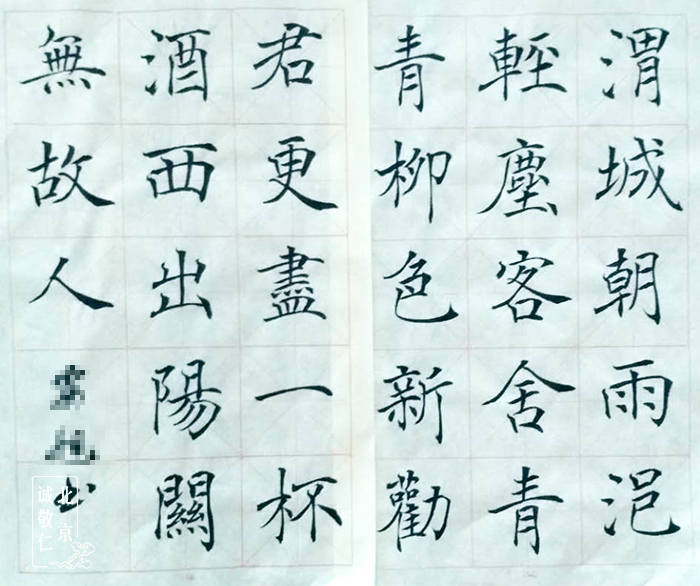 渭城朝雨浥
輕塵客舍青
青柳色新勸
君更盡一杯
酒西出陽關
無故人
北京
诚敬仁